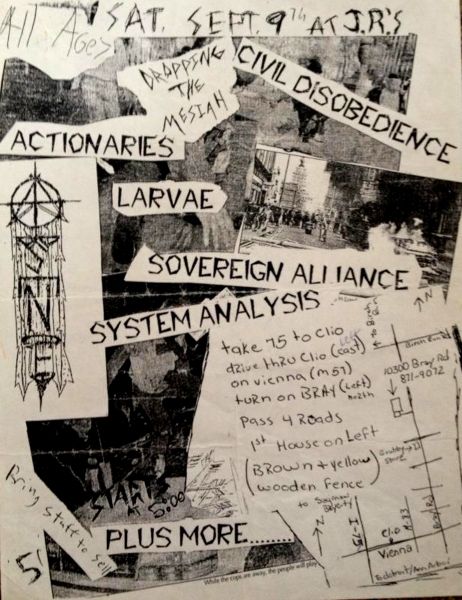 All Ages
SAT. SEPT. 9TH AT J.R.'S
DRAPPING
THE
MESIAH
CIVIL DISOBEDIENCE
ACTIONARIES
LARVAE
SOVEREIGN ALLIANCE
SYSTEM ANALYSIS
take 75 to Clio
drive thru Clio (east) left
on vienna (m57)
turn on BRAY (Left)
North
Pass 4 Roads
1st House on Left
(BROWN + yellow
wooden fence)
N
10300 Bray Rd
871-9072
N
I-75
Clio
M 83
Bray Rd
Vienna
To detroit/Ann Arbor
STARTS
AT 5:00
Bring stuff to sell
5
PLUS MORE........
While the cops are away, the people will play